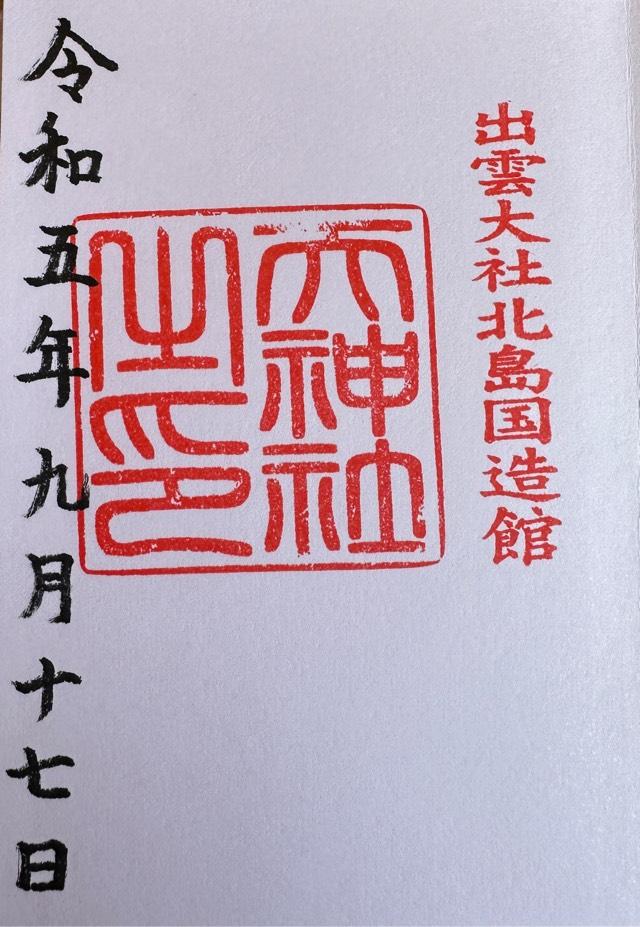 出雲大社北島国造館
天神社
之印
令和五年九月十七日